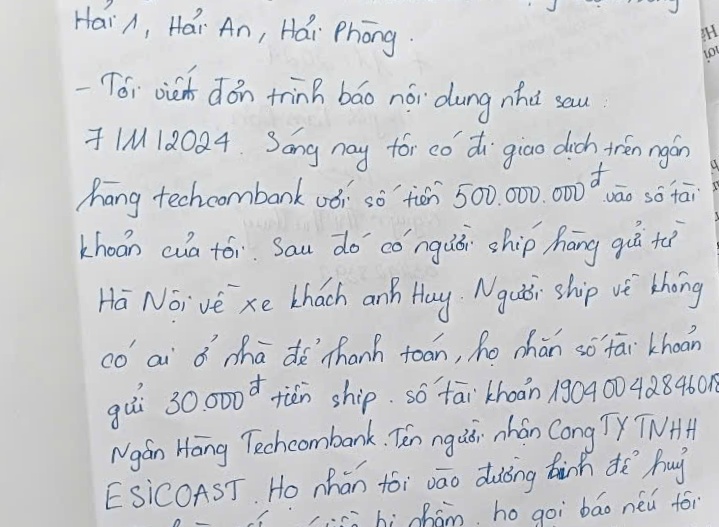 Hải 1, Hải An, Hải Phòng.
- Tôi viết đơn trình báo nội dung như sau:
7/11/2024. Sáng nay tôi có đi giao dịch trên ngân
hàng techcombank với số tiền 500.000.000đ vào số tài
khoản của tôi. Sau đó có người ship hàng gửi từ
Hà Nội về xe khách anh Huy. Người ship về không
có ai ở nhà để thanh toán, họ nhắn số tài khoản
gửi 30.000đ tiền ship. số tài khoản 19040042846018
Ngân Hàng Techcombank. Tên người nhận Công TY TNHH
ESICOAST. Họ nhắn tôi vào đường linh để huỷ
bị nhầm, họ gọi báo nếu tôi